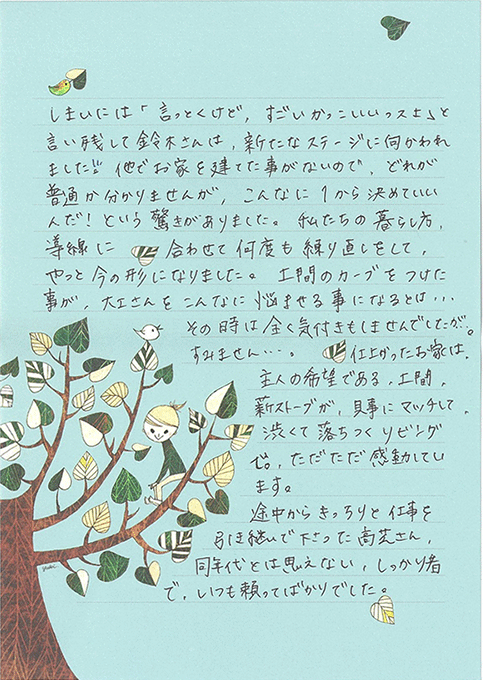 しまいには「言っとくけど、すごいかっこいいっスよ」と
言い残して鈴木さんは、新たなステージに向かわれ
ました!! 他でお家を建てた事がないので、どれが
普通か分かりませんが、こんなに1から決めていい
んだ！という驚きがありました。私たちの暮らし方、
導線に 合わせて何度も練り直しをして、
やっと今の形になりました。土間のカーブをつけた
事が、大工さんをこんなに悩ませる事になるとは…
その時は全く気付きもしませんでしたが。
すみません…。 仕上がったお家は、
主人の希望である、土間、
薪ストーブが、見事にマッチして、
渋くて落ちつくリビング
で。、ただただ感動してい
ます。
途中からきっちりと仕事を
引き継いで下さった高芝さん、
同年代とは思えない、しっかり者
で、いつも頼ってばかりでした。